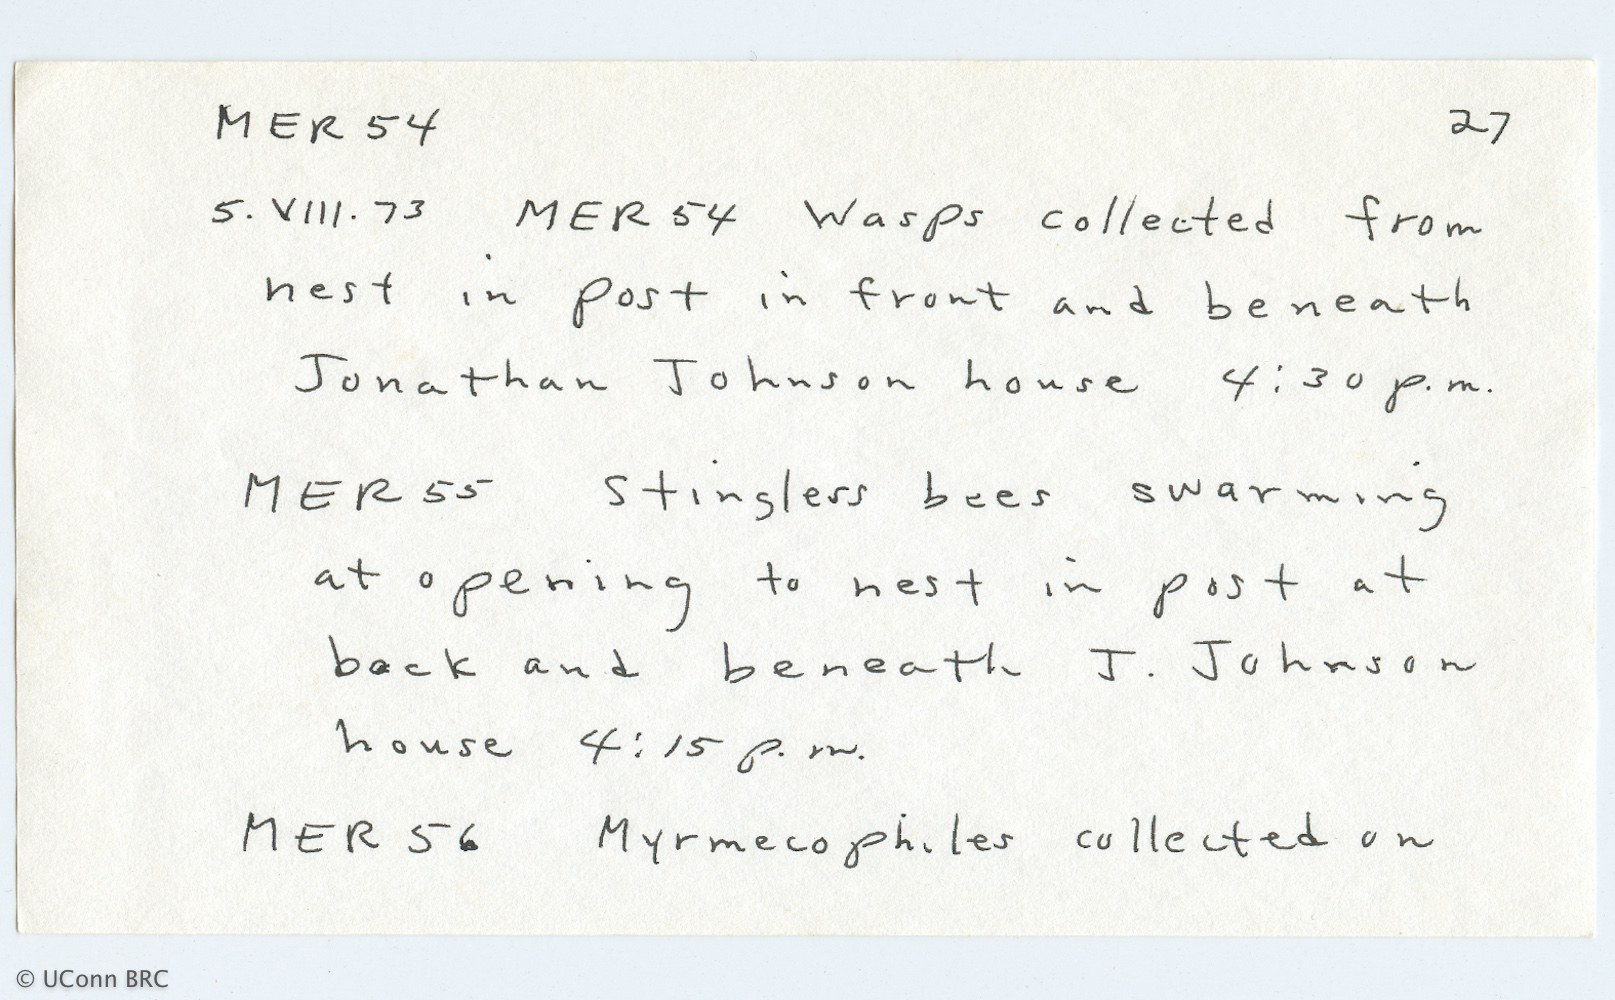 MER 54 27
5. VIII. 73 MER 54 Wasps collected from
nest in post in front and beneath
Jonathan Johnson house 4:30 p.m.
MER 55 Stingless bees swarming
at opening to nest in post at
back and beneath J. Johnson
house 4:15 p.m.
MER 56 Myrmecophiles collected on
© UConn BRC